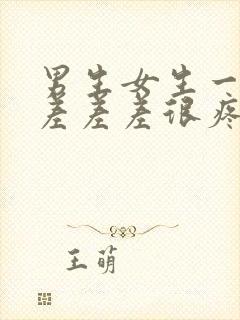 男生女生一
差差差很疼
王萌